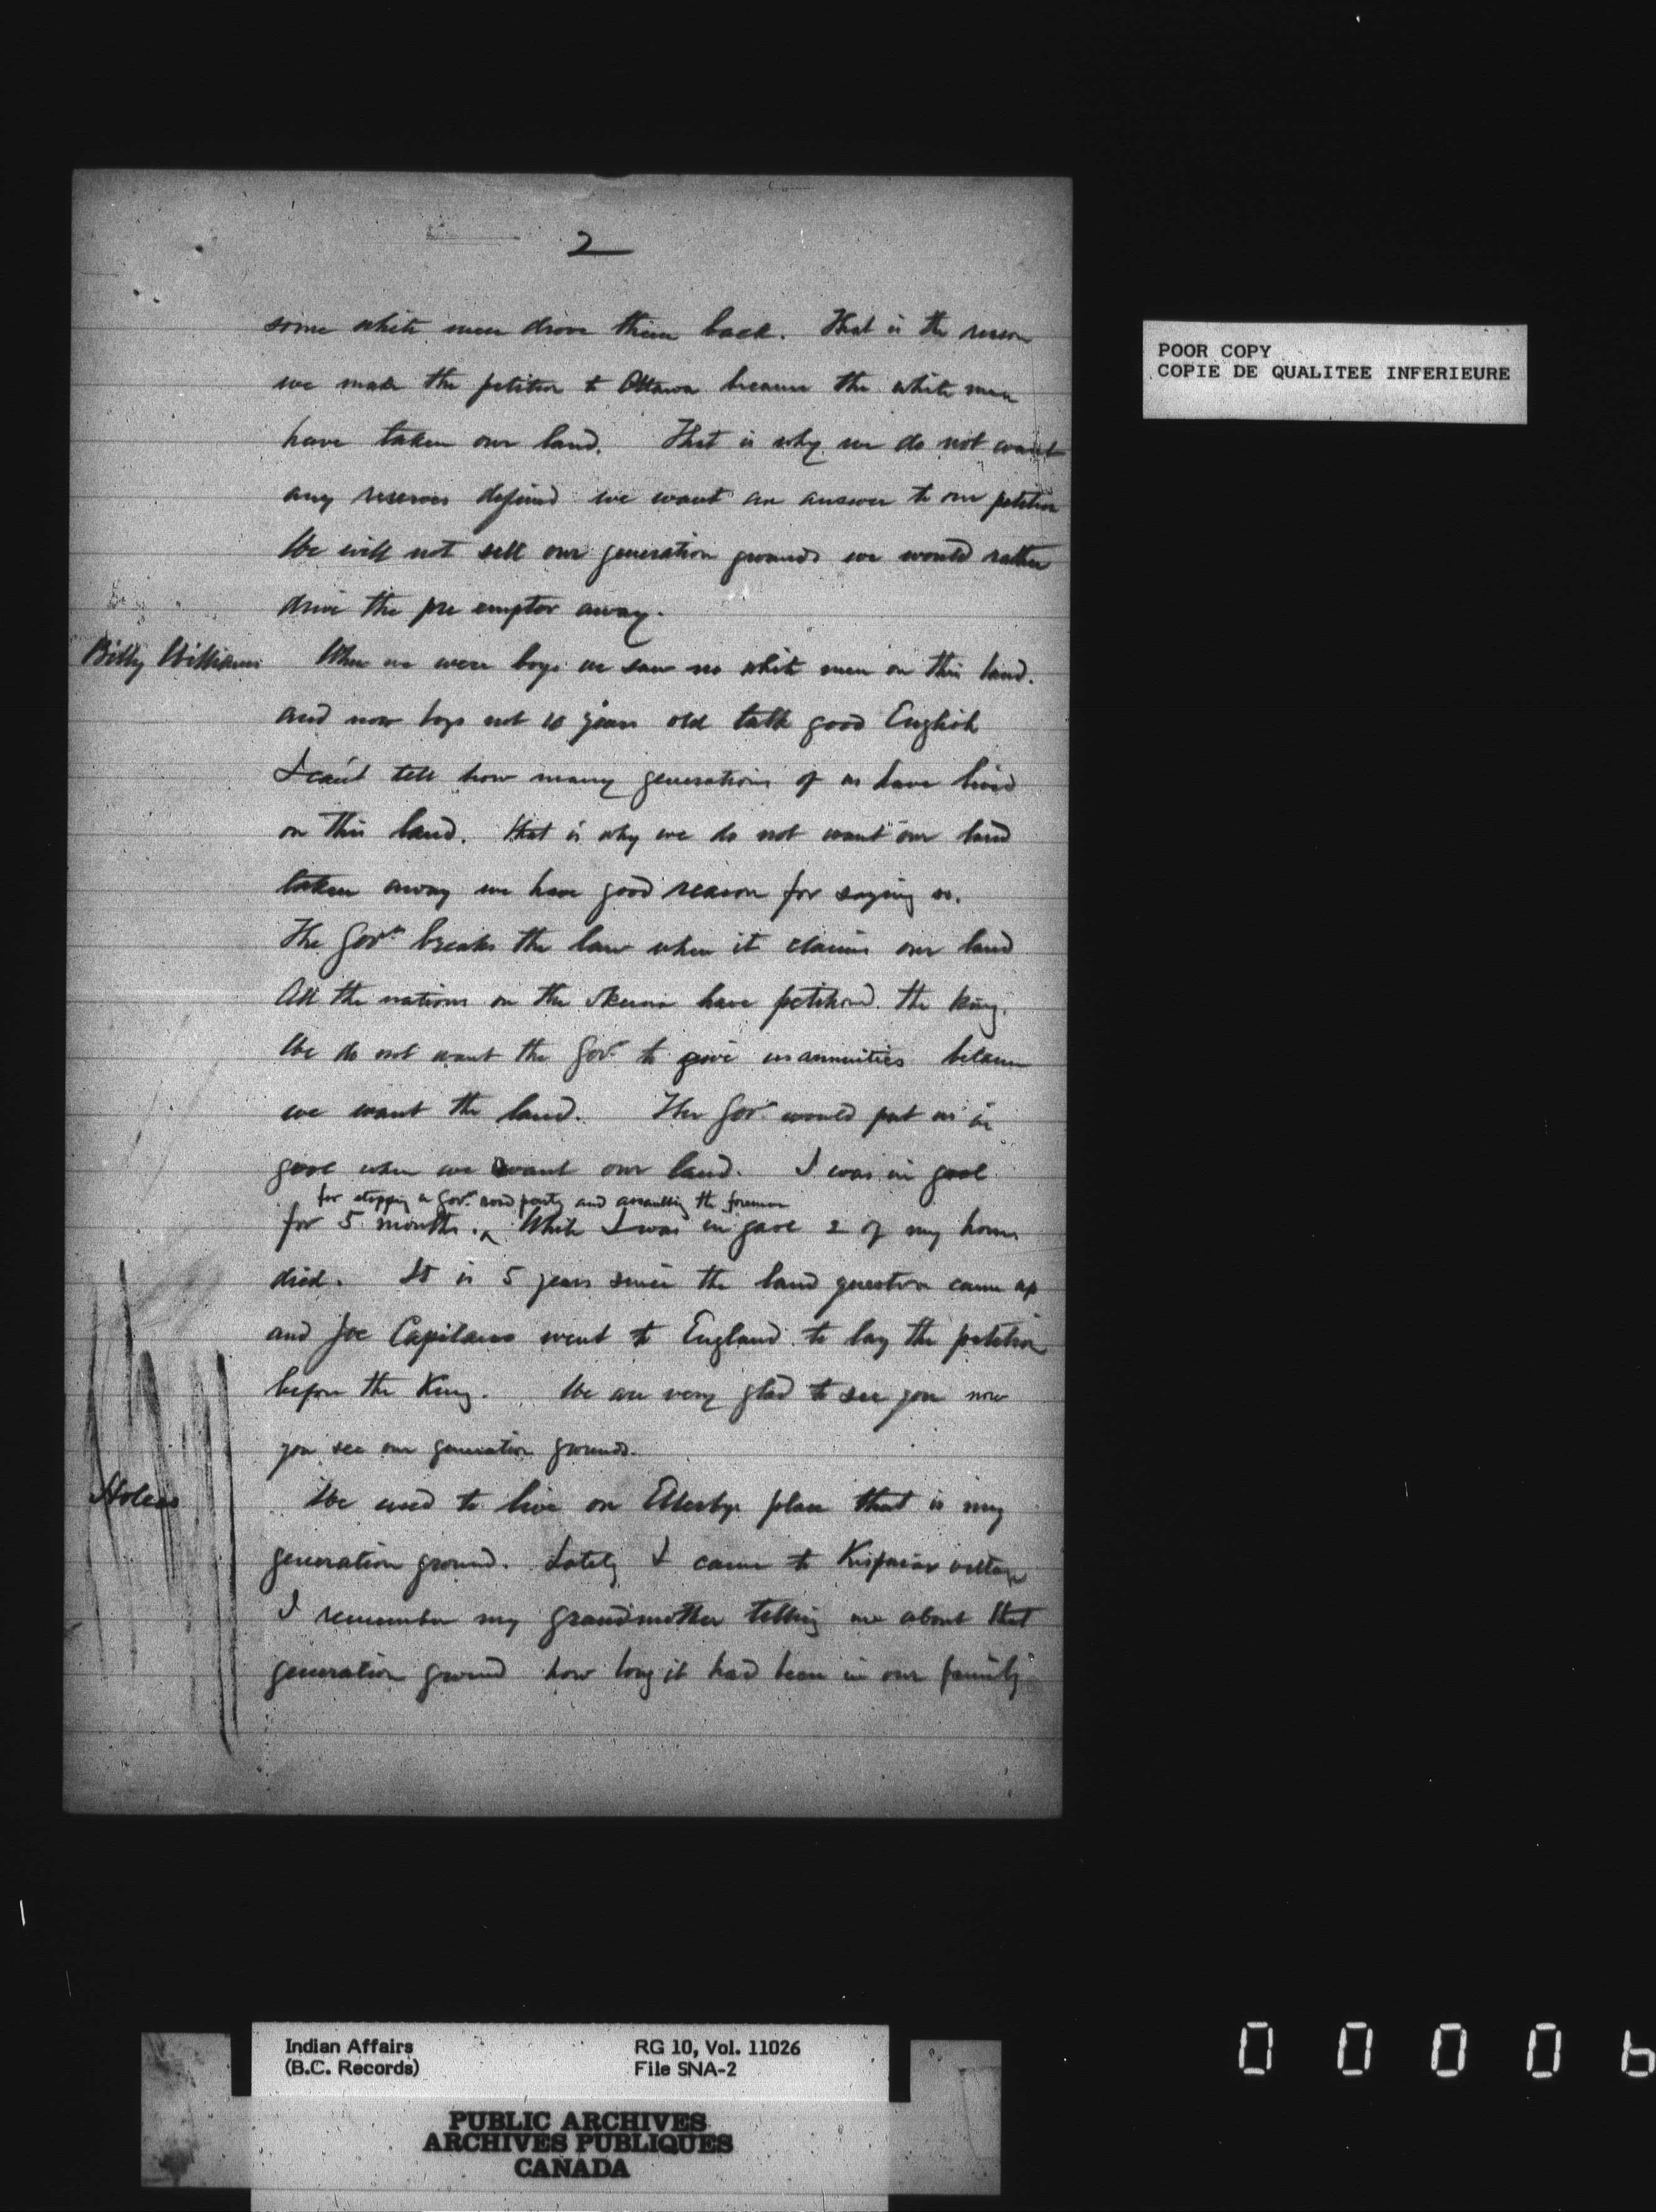 2
some white men drove them back. That is the reason
we made the petition to Ottawa because the white men
have taken our land. That is why we do not want
any reserves defined we want an answer to our petition
We will not sell our generation grounds we would rather
drive the pre emptor away.
Billy Williams When we were boys we saw no white men on this land.
and now boys not 10 years old talk good English
I can't tell how many generations of us have lived
on this land. that is why we do not want our land
taken away we have good reason for saying so.
The Govt. breaks the law when it claims our land
All the nations on the Skeena have petitioned the King.
We do not want the Govt to give us annuities because
we want the land. The Govt. would put us in
gaol when we want our land. I was in gaol
for stopping a Govt. road party and assaulting the foreman
for 5 months. While I was in gaol 2 of my horses
died. It is 5 years since the land question came up
and Joe Capilano went to England to lay the petition
before the King. We are very glad to see you now
you see our generation grounds.
We used to live on place that is my
generation ground. Lately I came to Kispaiax village
I remember my grandmother telling me about that
generation ground how long it had been in our family
POOR COPY
COPIE DE QUALITEE INFERIEURE
Indian Affairs RG 10, Vol. 11026
(B.C. Records) File SNA-2
PUBLIC ARCHIVES
ARCHIVES PUBLIQUES
CANADA
0 0 0 0 6